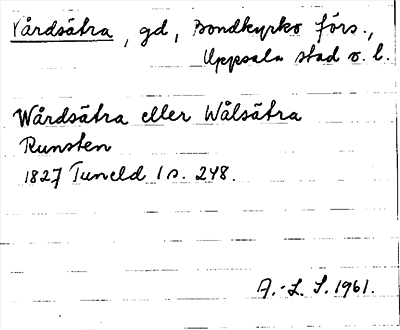 Vårdsätra, gd, Bondkyrko förs.,
Uppsala stad o. l.
Wårdsätra eller Wålsätra
Runsten
1827 Tuneld 1 s. 248.
A.-L. S. 1961.